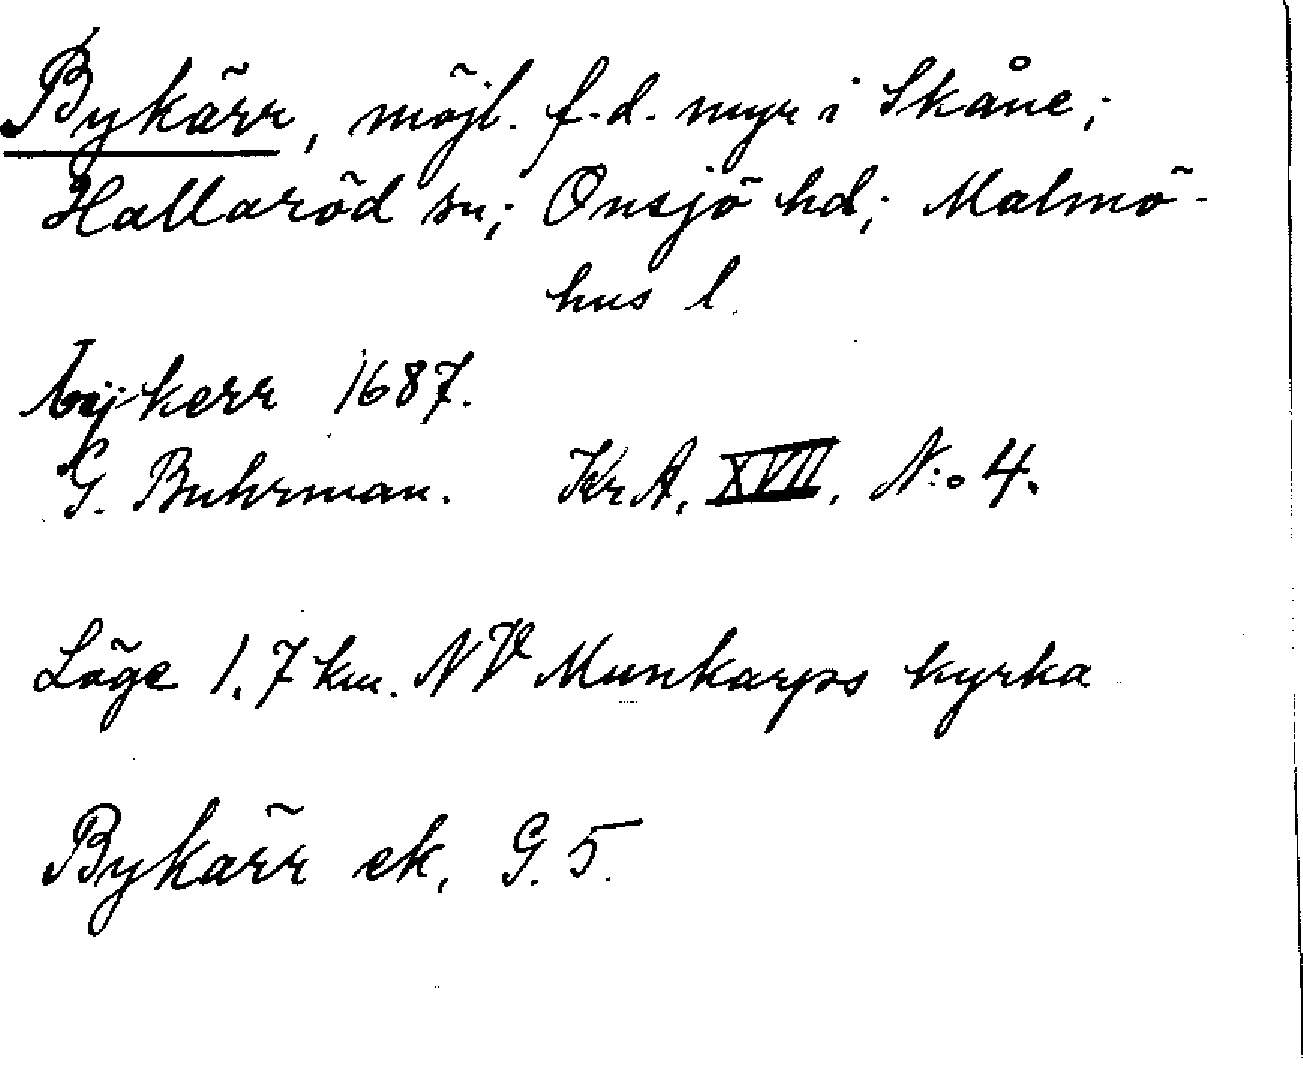 Bykärr, möjl. f.d. myr i Skåne;
Hallaröd sn; Onsjö hd; Malmö-
hus l.
bykerr 1687.
G. Buhrman. KrA, XVII, N:o 4.
Läge 1,7 km. NV Munkarps kyrka
Bykärr ek, G. 5.